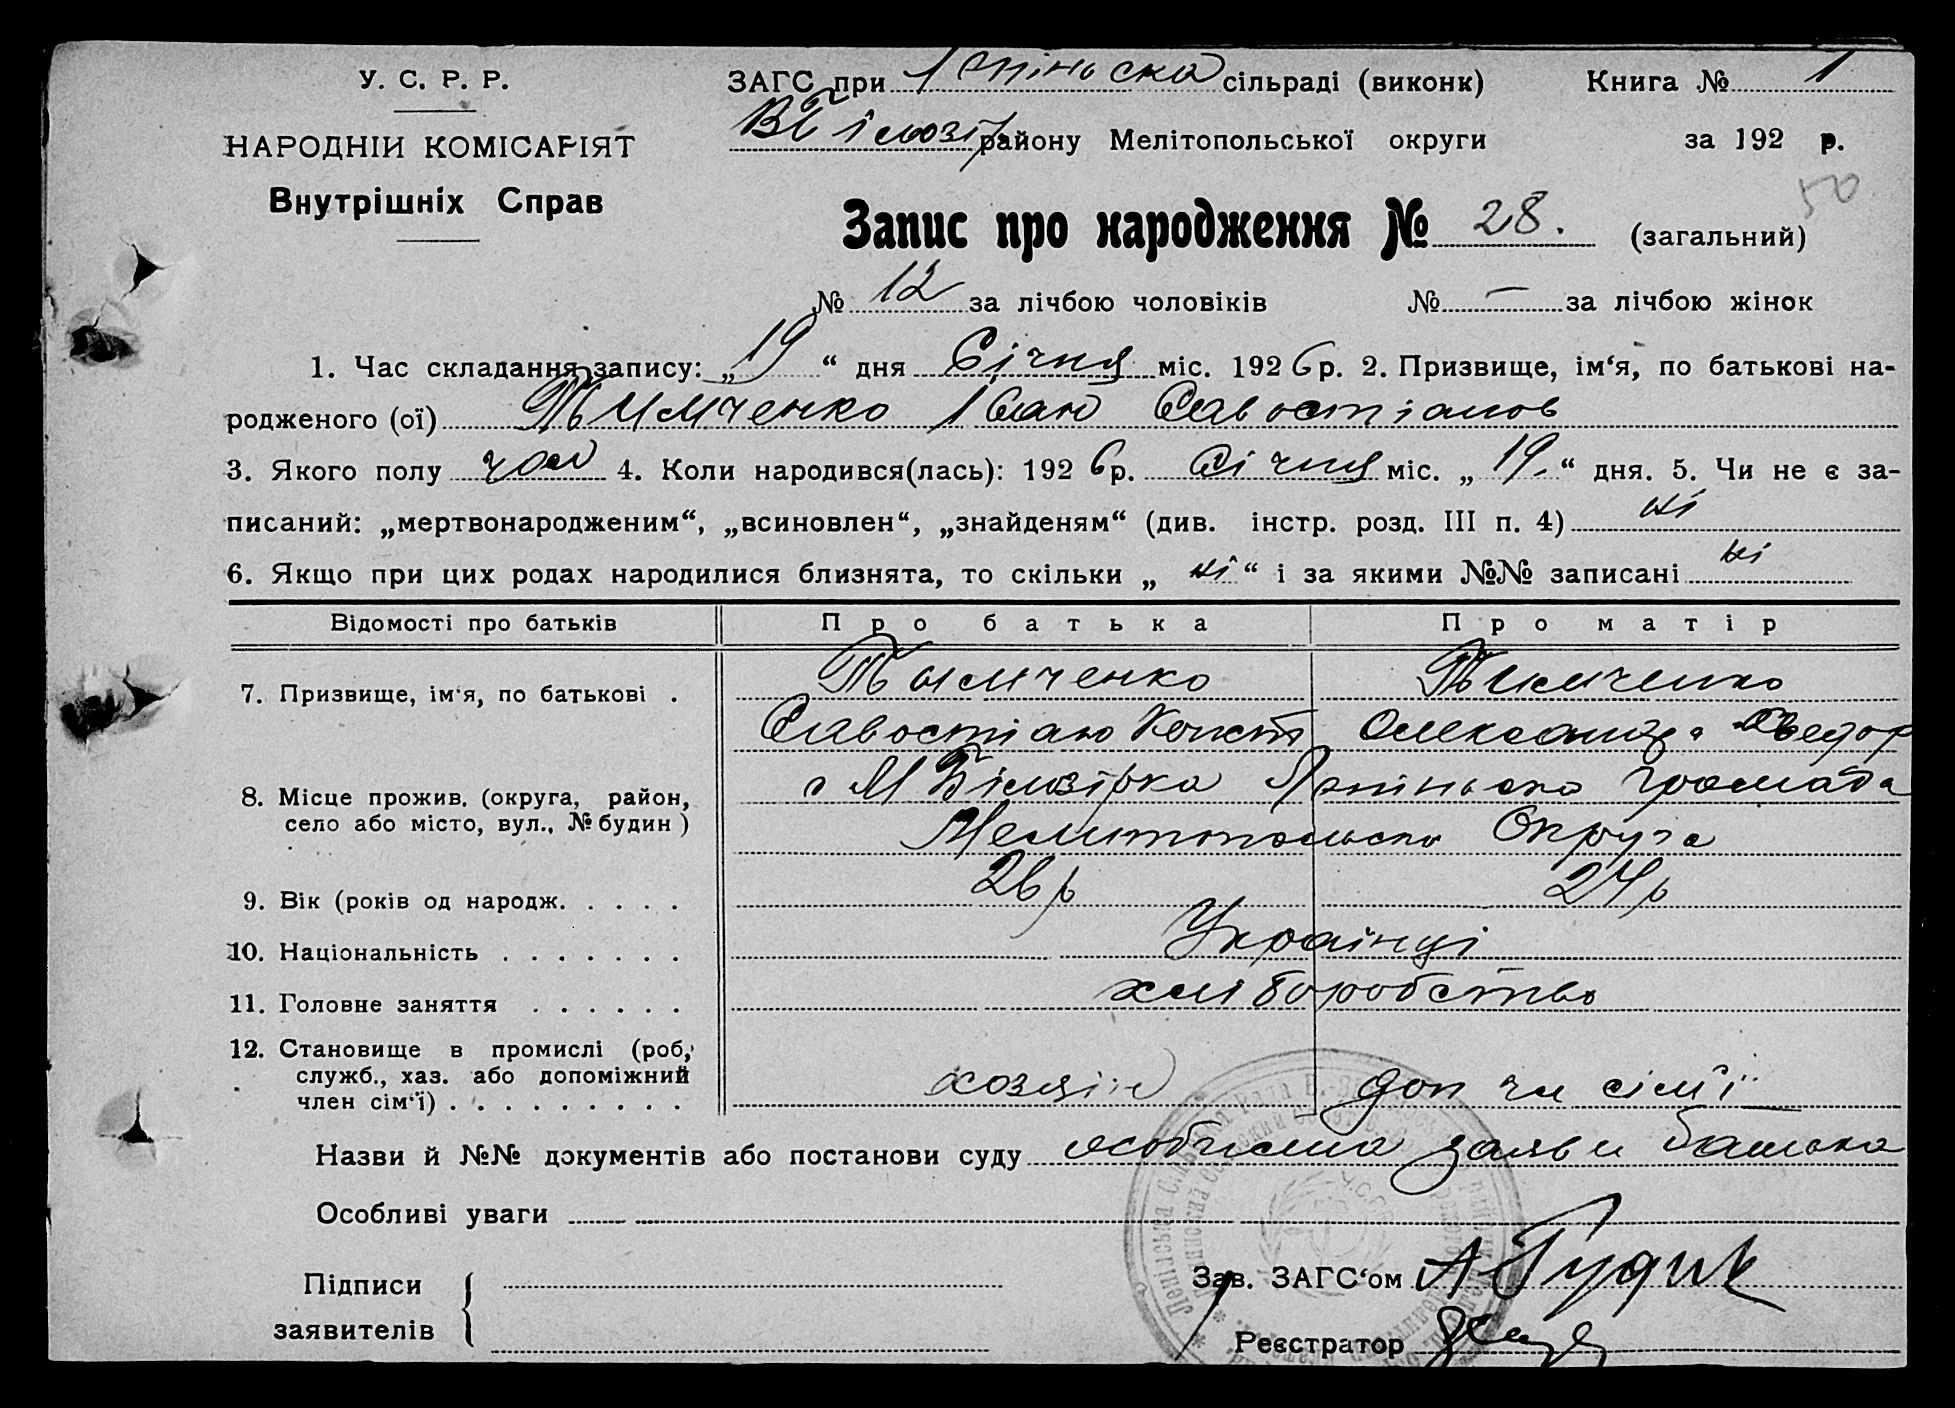 У. С. Р. Р.
НАРОДНІЙ КОМІСАРІЯТ
Внутрішніх Справ
ЗАГС при сільраді (виконк) Книга № 1
району Мелітопольської округи за 192 р.
50
Запис про народження № 28. (загальний)
№ 12 за лічбою чоловіків № — за лічбою жінок
1. Час складання запису: „ 19 “ дня Січня міс. 192 6 р. 2. Призвище, ім‘я, по батькові на-
родженого (ої) Тымченко Іван Савостіанов
3. Якого полу чол 4. Коли народився(лась): 192 6 р. Січня міс. „ 19. “ дня. 5. Чи не є за-
писаний: „мертвонародженим“, „всиновлен“, „знайденям“ (див. інстр. розд. III п. 4) ні
6. Якщо при цих родах народилися близнята, то скільки „ ні “ і за якими №№ записані ні
Відомості про батьків Про батька Про матір
7. Призвище, ім‘я, по батькові . Тымченко Тимченко
Савостіан Конст Олександра Федор
8. Місце прожив. (округа, район, с М Білозірка громада
село або місто, вул., № будин) Мелитопольска Округа
9. Вік (років од народж. . . . . 26 р 24 р
10. Національність . . . . . . . Українці
11. Головне заняття . . . . . . хліборобство
12. Становище в промислі (роб,
служб., хаз. або допоміжний хозяін доп чл сім'ї
член сім‘ї) . . . . . . . . .
Назви й №№ документів або постанови суду особиста заяви батька
Особливі уваги
Підписи
заявителів
Зав. ЗАГС‘ом
Реєстратор